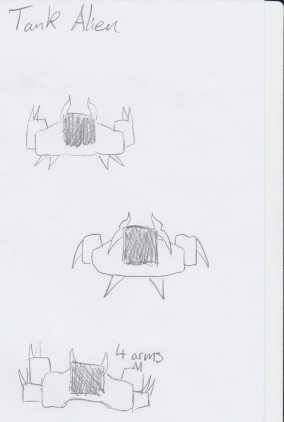 Tank Alien
4 arms